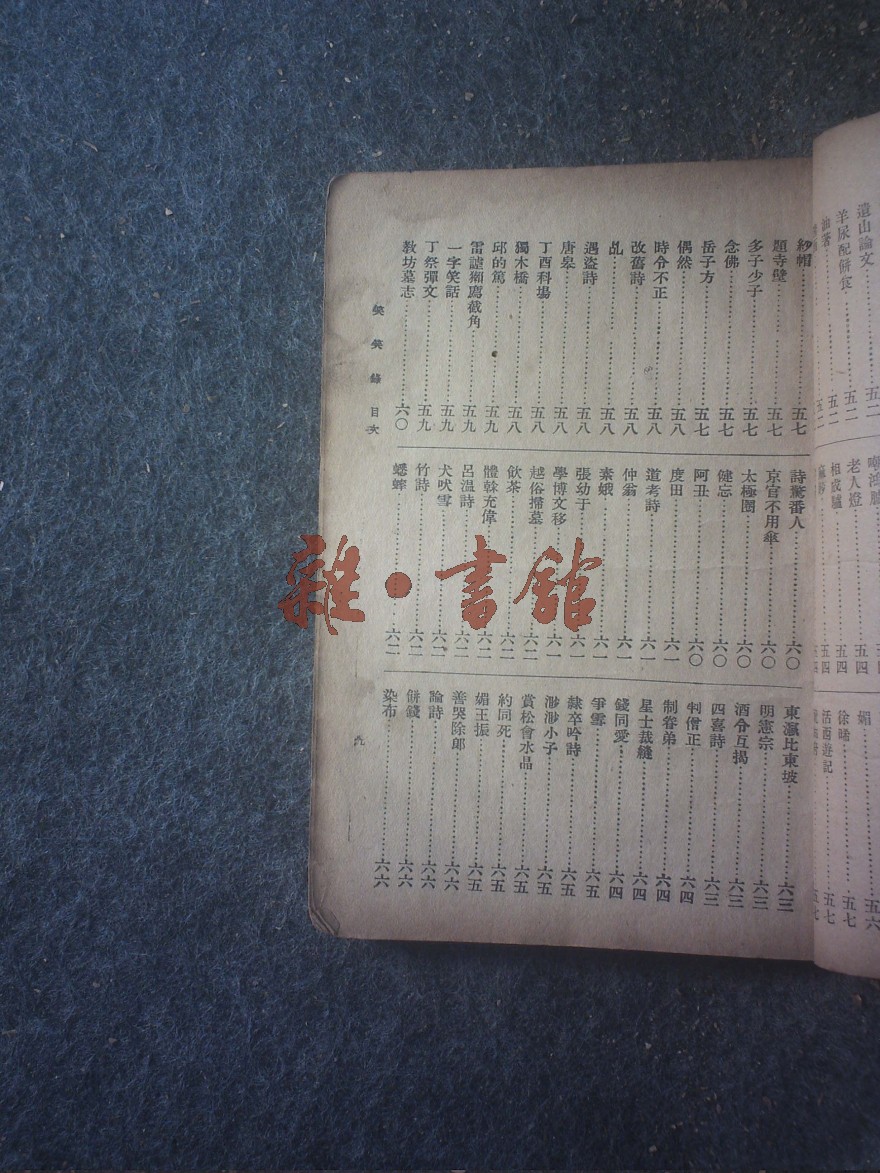 遺山論文……五二
羊尿配餅食……五二
五二
老人燈……五四
相成驢……五四
媚……五六
徐晞……五七
活西遊記……五七
五七
紗帽……五七
題寺壁……五七
多子少子……五七
念佛……五七
岳子方……五七
偶然……五八
時令不正……五八
改舊詩……五八
乩……五八
遇盜詩……五八
唐皋……五八
丁酉科場……五八
獨木橋……五八
邱的篤……五九
雷謔獺廌截角……五九
一字笑話……五九
丁祭彈文……五九
教坊墓志……六〇
詩驚番人……六〇
京官不用傘……六〇
太極圈……六〇
健忘……六〇
阿丑……六〇
度田……六一
道考詩……六一
仲翁……六一
素蛾……六一
張幼于……六一
學博文移……六一
越俗掃墓……六二
飲茶……六二
體榦充偉……六二
呂溫詩……六二
犬吠雪……六二
竹詩……六二
蟋蟀……六二
東瀛比東坡……六三
明憲宗……六三
酒令互揭……六三
四喜詩……六三
判僧正……六四
制眷弟……六四
星士裁縫……六四
錢同愛……六四
爭雪……六五
隸卒吟詩……六五
渺渺小子……六五
賞松會水品……六五
約同死……六五
媚王振……六五
善哭除郎……六六
論詩……六六
餅錢……六六
染布……六六
笑笑錄 目次
九
雜·書館